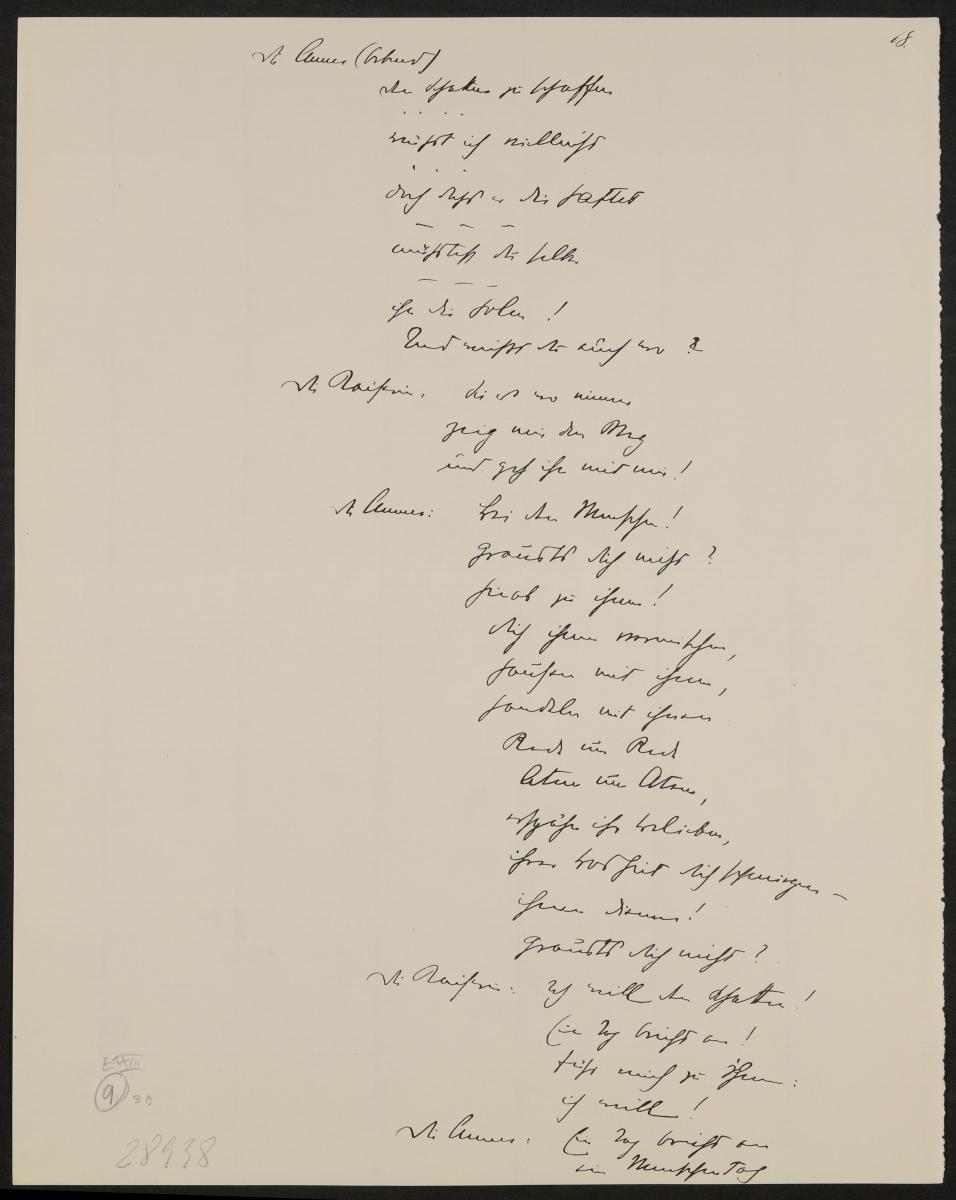 18.
die Amme
den Schatten zu schaffen
wüsst ich vielleicht
doch dass er dir haftet
müsstest du selber
ihn dir holen!
Und weisst du auch wo?
die Kaiserin: sei es wo immer
zeig mir den Weg
und geh ihn mit mir!
die Amme: bei den Menschen!
grausts dich nicht?
hinab zu ihnen!
dich ihnen vermischen,
hausen mit ihnen,
handeln mit ihnen
Rede um Rede
Atem um Atem,
erspähn ihr Belieben,
ihrer Bosheit dich schmiegen –
ihnen dienen!
grausts dich nicht?
die Kaiserin: Ich will den Schatten!
Ein Tag bricht an!
führ mich zu ihnen:
ich will!
die Amme: Ein Tag bricht an
ein Menschentag
E IV
9. 30
28938